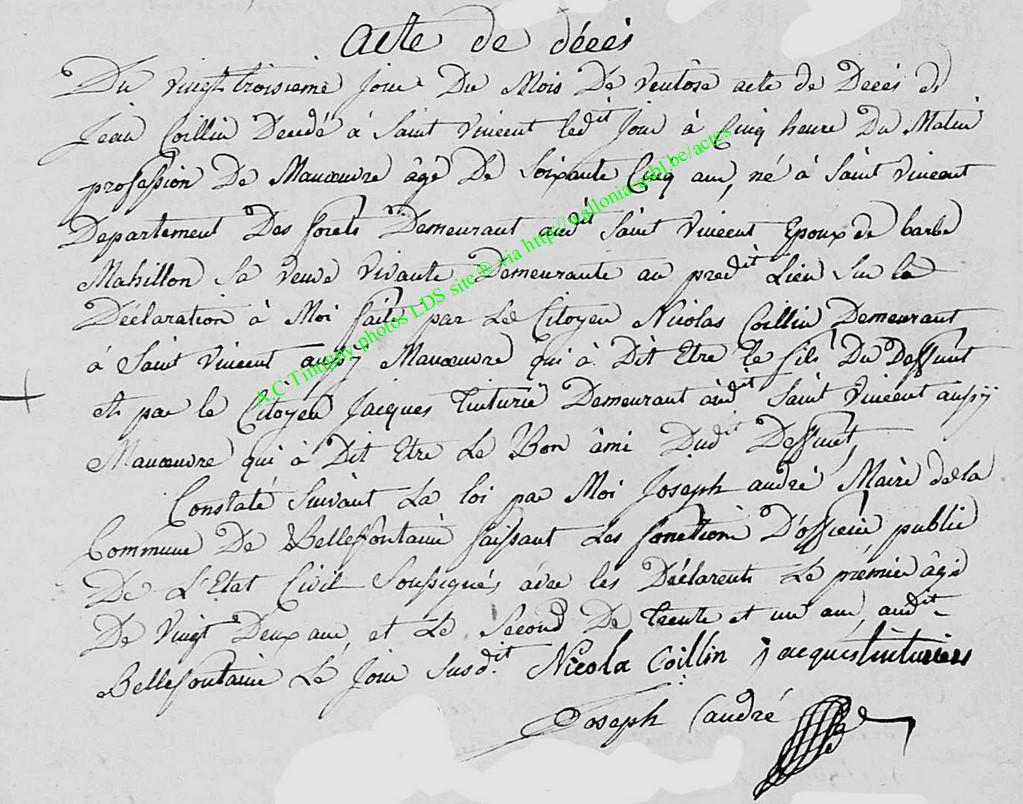 Acte de décès
Du vingt troisieme Jour Du Mois De Ventôse acte de Décès de
Jean Coillin Décédé à Saint Vincent ledit Jour à Cinq heure Du Matin
profession De Manœuvre âgé De Soixante Cinq ans, né à Saint Vincent
Departement Des forets Demeurant audit Saint Vincent Epoux de barbe
Mahillon Sa veuve vivante Demeurante au predit Lieu Sur la
Déclaration à Moi faite par Le Citoyen Nicolas Coillin Demeurant
à Saint Vincent aussy Manœuvre qui à Dit Etre le fils Du Deffunt
et par le Citoyen Jacques Tinturie Demeurant audit Saint Vincent aussy
Manœuvre qui à Dit Etre Le Bon âmi Dudit Deffunt,
Constaté Suivant La loi par Moi Joseph andré Maire de la
Commune De Bellefontaine faissant Les fonction D'officier public
De L'Etat Civil Soussignés avec les Déclarents Le premier âgé
De Vingt Deux ans et Le Second De Trente et un ans audit
Bellefontaine Le Jour Susdit. Nicola Coillin jacques tinturiers
Joseph andré
A.C Tintigny photos LDS site@ via http://wallonia-asbl.be/actes